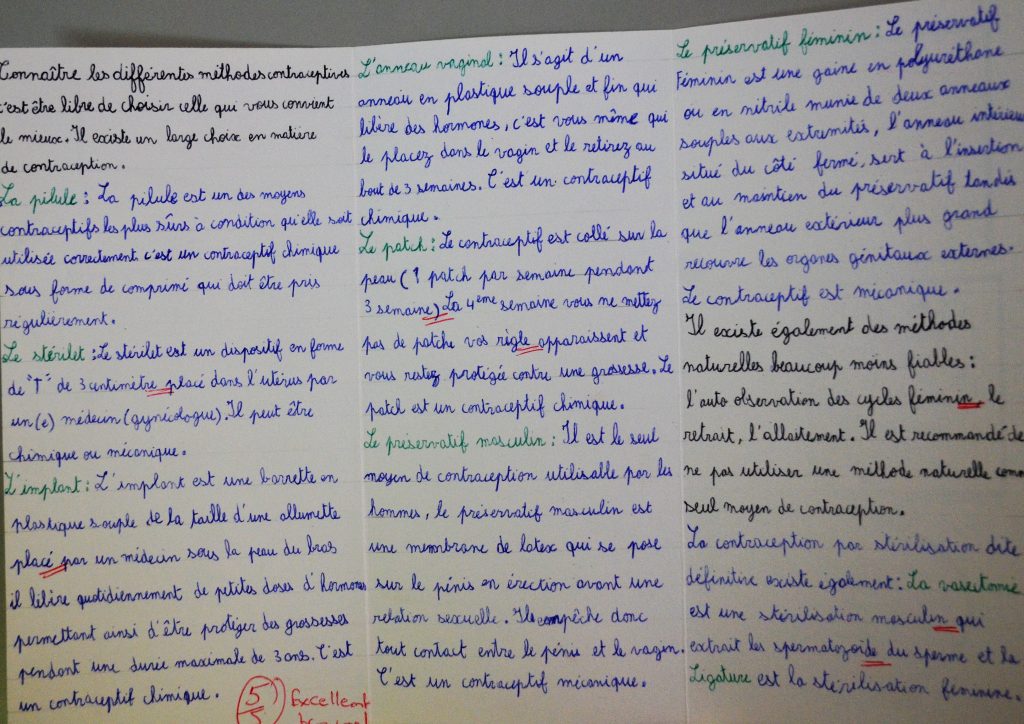 Connaître les différentes méthodes contraceptives
c'est être libre de choisir celle qui vous convient
le mieux. Il existe un large choix en matière
de contraception.
La pilule : La pilule est un des moyens
contraceptifs les plus sûrs à condition qu'elle soit
utilisée correctement c'est un contraceptif chimique
sous forme de comprimé qui doit être pris
régulièrement.
Le stérilet : Le stérilet est un dispositif en forme
de "T" de 3 centimètre placé dans l'utérus par
un(e) médecin (gynécologue). Il peut être
chimique ou mécanique.
L'implant : L'implant est une barrette en
plastique souple de la taille d'une allumette
placé par un médecin sous la peau du bras
il libère quotidiennement de petites doses d'hormones
permettant ainsi d'être protéger des grossesses
pendant une durée maximale de 3 ans. C'est
un contraceptif chimique.
5/5 Excellent
L'anneau vaginal : Il s'agit d'un
anneau en plastique souple et fin qui
libère des hormones, c'est vous même qui
le placez dans le vagin et le retirez au
bout de 3 semaines. C'est un contraceptif
chimique.
Le patch : Le contraceptif est collé sur la
peau (1 patch par semaine pendant
3 semaine) La 4eme semaine vous ne mettez
pas de patche vos règle apparaissent et
vous restez protégée contre une grossesse. Le
patch est un contraceptif chimique.
Le préservatif masculin : Il est le seul
moyen de contraception utilisable par les
hommes, le préservatif masculin est
une membrane de latex qui se pose
sur le pénis en érection avant une
relation sexuelle. Il empêche donc
tout contact entre le pénis et le vagin.
C'est un contraceptif mécanique.
Le préservatif féminin : Le préservatif
Féminin est une gaine en polyuréthane
ou en nitrile munie de deux anneaux
souples aux extremités, l'anneau intérieur
situé du côté fermé, sert à l'insertion
et au maintien du préservatif tandis
que l'anneau extérieur plus grand
recouvre les organes génitaux externes.
Le contraceptif est mécanique.
Il existe également des méthodes
naturelles beaucoup moins fiables :
l'auto observation des cycles féminin, le
retrait, l'allaitement. Il est recommandé de
ne pas utiliser une méthode naturelle comme
seul moyen de contraception.
La contraception par stérilisation dite
définitive existe également : La vasectomie
est une stérilisation masculin qui
extrait les spermatozoïde du sperme et la
Ligature est la stérilisation feminine.